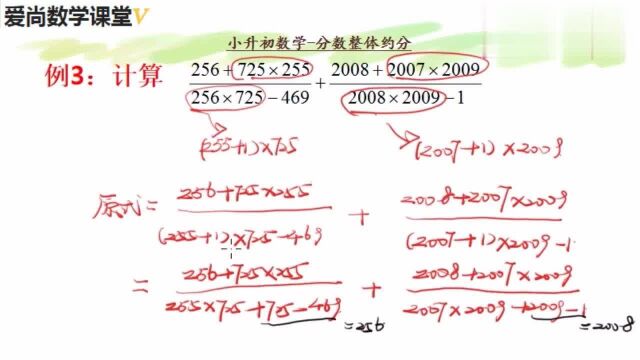 爱尚数学课堂V
小升初数学-分数整体约分
例3：计算 (256+725×255)/(256×725-469) + (2008+2007×2009)/(2008×2009-1)
(255+1)×725 (2007+1)×2009
原式= (256+725×255)/((255+1)×725-469) + (2008+2007×2009)/((2007+1)×2009-1)
= (256+725×255)/(255×725+725-469) + (2008+2007×2009)/(2007×2009+2009-1)
=256 =2008